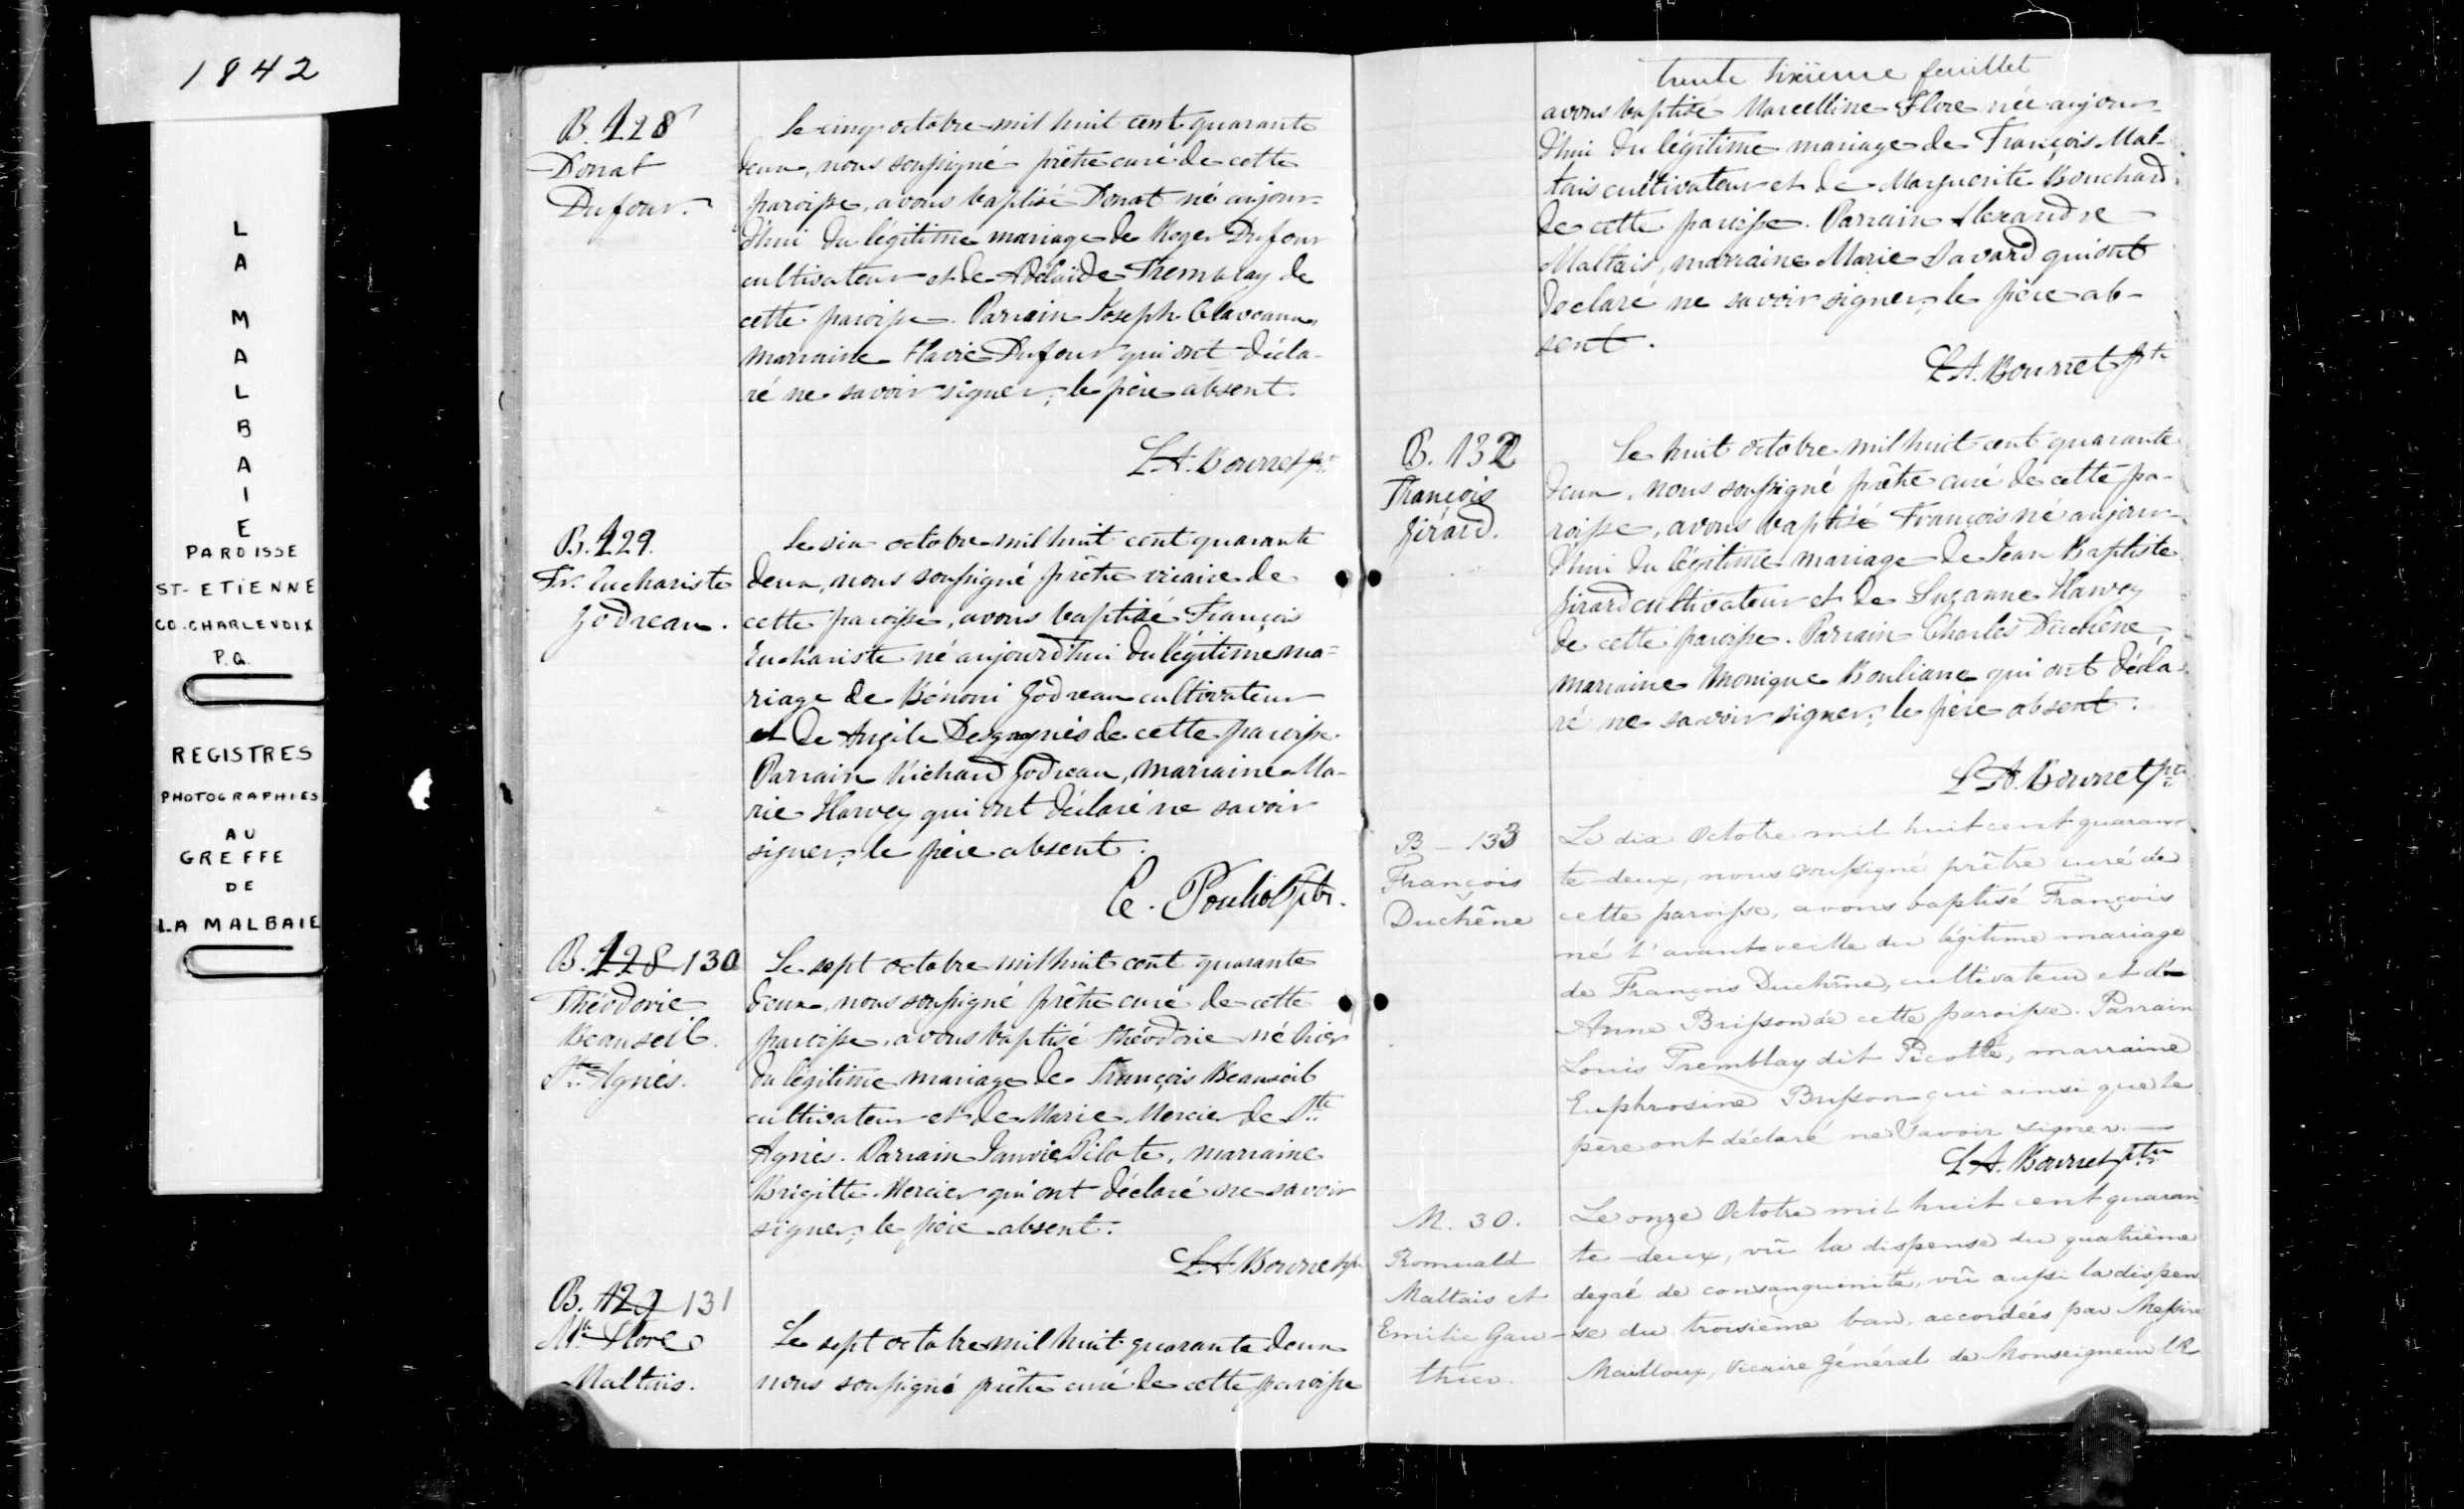 1842
LA MALBAIE
PAROISSE
ST-ETIENNE
CO. CHARLEVOIX
P.Q.
REGISTRES
PHOTOGRAPHIES
AU
GREFFE
DE
LA MALBAIE
B. 128
Donat
Dufour.
Le cinq octobre mil huit cent quarante
deux, nous soussigné prêtre curé de cette
paroisse, avons baptisé Donat né aujour-
d'hui du légitime mariage de Roger Dufour
cultivateur et de Adélaïde Tremblay de
cette paroisse. Parrain Joseph Claveau,
marraine Marie Dufour qui ont décla-
ré ne savoir signer; le père absent.
L.A. Bourret ptr
B. 129.
Fr. Euchariste
Godreau.
Le six octobre mil huit cent quarante
deux, nous soussigné prêtre vicaire de
cette paroisse, avons baptisé François
Euchariste né aujourd'hui du légitime ma-
riage de Bénoni Godreau cultivateur
et de Angèle Desgagnés de cette paroisse.
Parrain Richard Godreau, marraine Ma-
rie Harvey qui ont déclaré ne savoir
signer; le père absent.
C. Pouliot ptr.
B. 128 130
Théodorie
Beauseil
Ste Agnès.
Le sept octobre mil huit cent quarante
deux, nous soussigné prêtre curé de cette
paroisse, avons baptisé Théodorie né hier
du légitime mariage de François Beausoil
cultivateur et de Marie Mercier de Ste
Agnès. Parrain Janvier Pilote, marraine
Brigitte Mercier qui ont déclaré ne savoir
signer; le père absent.
L.A. Bourret ptr
B. 129 131
Mle Flore
Maltais.
Le sept octobre mil huit quarante deux
nous soussigné prêtre curé de cette paroisse
trente sixième feuillet
avons baptisé Marcelline Flore née aujour-
d'hui du légitime mariage de François Mal-
tais cultivateur et de Marguerite Bouchard
de cette paroisse. Parrain Alexandre
Maltais, marraine Marie Savard qui ont
déclaré ne savoir signer; le père ab-
sent.
L.A. Bourret ptr
B. 132
François
Girard.
Le huit octobre mil huit cent quarante
deux, nous soussigné prêtre curé de cette pa-
roisse, avons baptisé François né aujour-
d'hui du légitime mariage de Jean Baptiste
Girard cultivateur et de Suzanne Harvey
de cette paroisse. Parrain Charles Duchêne,
marraine Monique Bouliane qui ont décla-
ré ne savoir signer; le père absent.
L.A. Bourret ptr
B - 133
François
Duchêne
Le dix Octobre mil huit cent quaran-
te-deux, nous soussigné prêtre curé de
cette paroisse, avons baptisé François
né l'avant veille du légitime mariage
de François Duchêne, cultivateur et d'
Anne Brisson de cette paroisse. Parrain
Louis Tremblay dit Picotte, marraine
Euphrosine Brisson qui ainsi que le
père ont déclaré ne savoir signer.
L.A. Bourret ptr
M. 30.
Romuald
Maltais et
Emilie Gau-
thier.
Le onze Octobre mil huit cent quaran-
te-deux, vû la dispense du quatrième
degré de consanguinité, vû aussi la dispen
se du troisième ban, accordées par Messire
Mailloux, Vicaire Général de Monseigneur